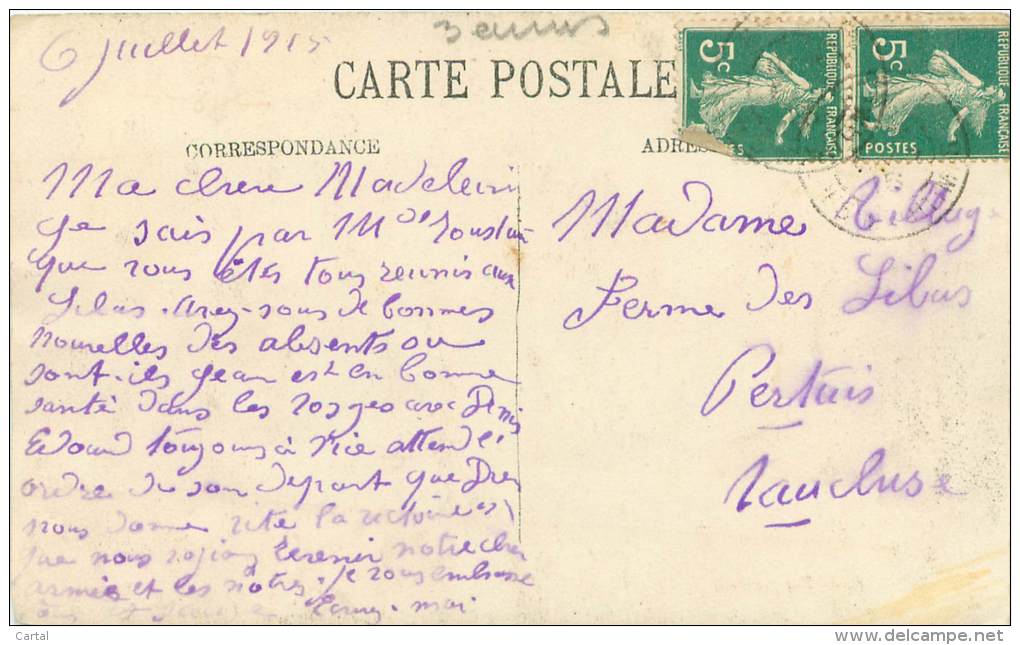 6 Juillet 1915
3 euros
CARTE POSTALE
5c
REPUBLIQUE FRANÇAISE
5c
REPUBLIQUE FRANÇAISE
POSTES
CORRESPONDANCE
Ma chere Madeleine
Je sais par Mde
que vous êtes tous reunis aux
Libas. Avez-vous de bonnes
nouvelles des absents ou
sont-ils Jean est en bonne
santé dans les Vosges avec Denis
Edouard toujours à Nice attend l'
ordre de son depart que Dieu
nous donne vite la victoire et
que nous voyions revenir notre cher
armée et les nôtres. Je vous embrasse
moi
Madame
Ferme des Libas
Pertuis
Vaucluse
Cartal
delcampe.net